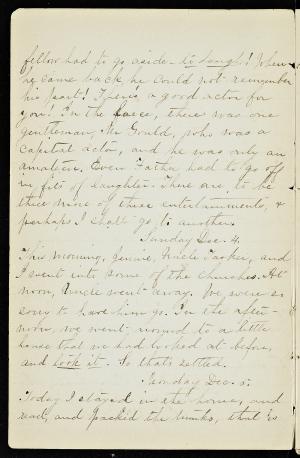 fellow had to go aside - to laugh! When
he came back, he could not remember
his part! There's a good actor for
you! In the Farce, there was one
gentleman, Mr. Gould, who was a
capital actor, and he was only an
amateur. Even Father had to go off
in fits of laughter. There are, to be
three more of these entertainments, &
perhaps I shall go to another.
Sunday Dec. 4.
This morning, Jennie, Uncle Tasker, and
I went into some of the churches. At
noon, Uncle went away. We, were so
sorry to have him go. In the after-
noon, we went round to a little
house that we had looked at before,
and took it. So that's settled.
Monday Dec. 5.
Today I stayed in the house, and
read, and packed the trunks, that is